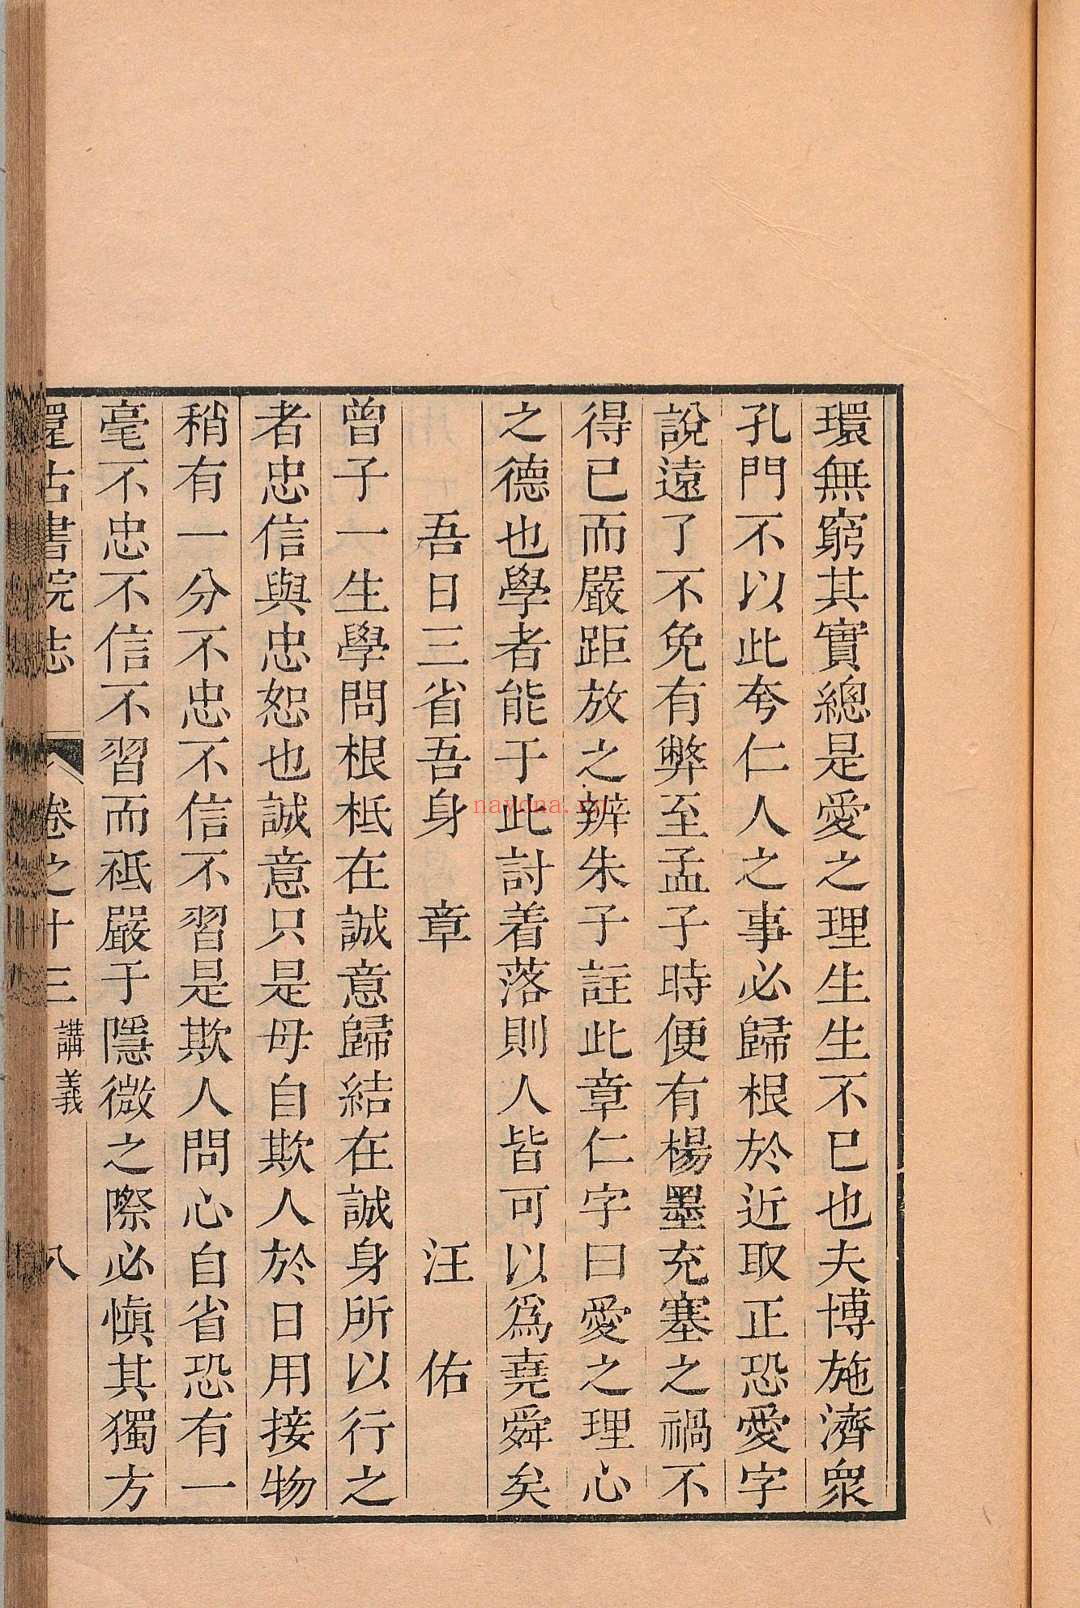 環無窮其實總是愛之理生生不已也夫博施濟眾
孔門不以此夸仁人之事必歸根於近取正恐愛字
說遠了不免有弊至孟子時便有楊墨充塞之禍不
得已而嚴距放之辨朱子註此章仁字曰愛之理心
之德也學者能于此討着落則人皆可以爲堯舜矣
吾日三省吾身章 汪佑
曾子一生學問根柢在誠意歸結在誠身所以行之
者忠信與忠恕也誠意只是毋自欺人於日用接物
稍有一分不忠不信不習是欺人問心自省恐有一
毫不忠不信不習而祗嚴于隱微之際必慎其獨方
還古書院志 卷之十三 講義 八